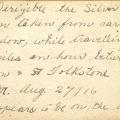 Dirigible the Silver
n taken from car
dow, while travelling
iles an hour betw
n & St Folkstone
Aug. 27/16
pears to be on the